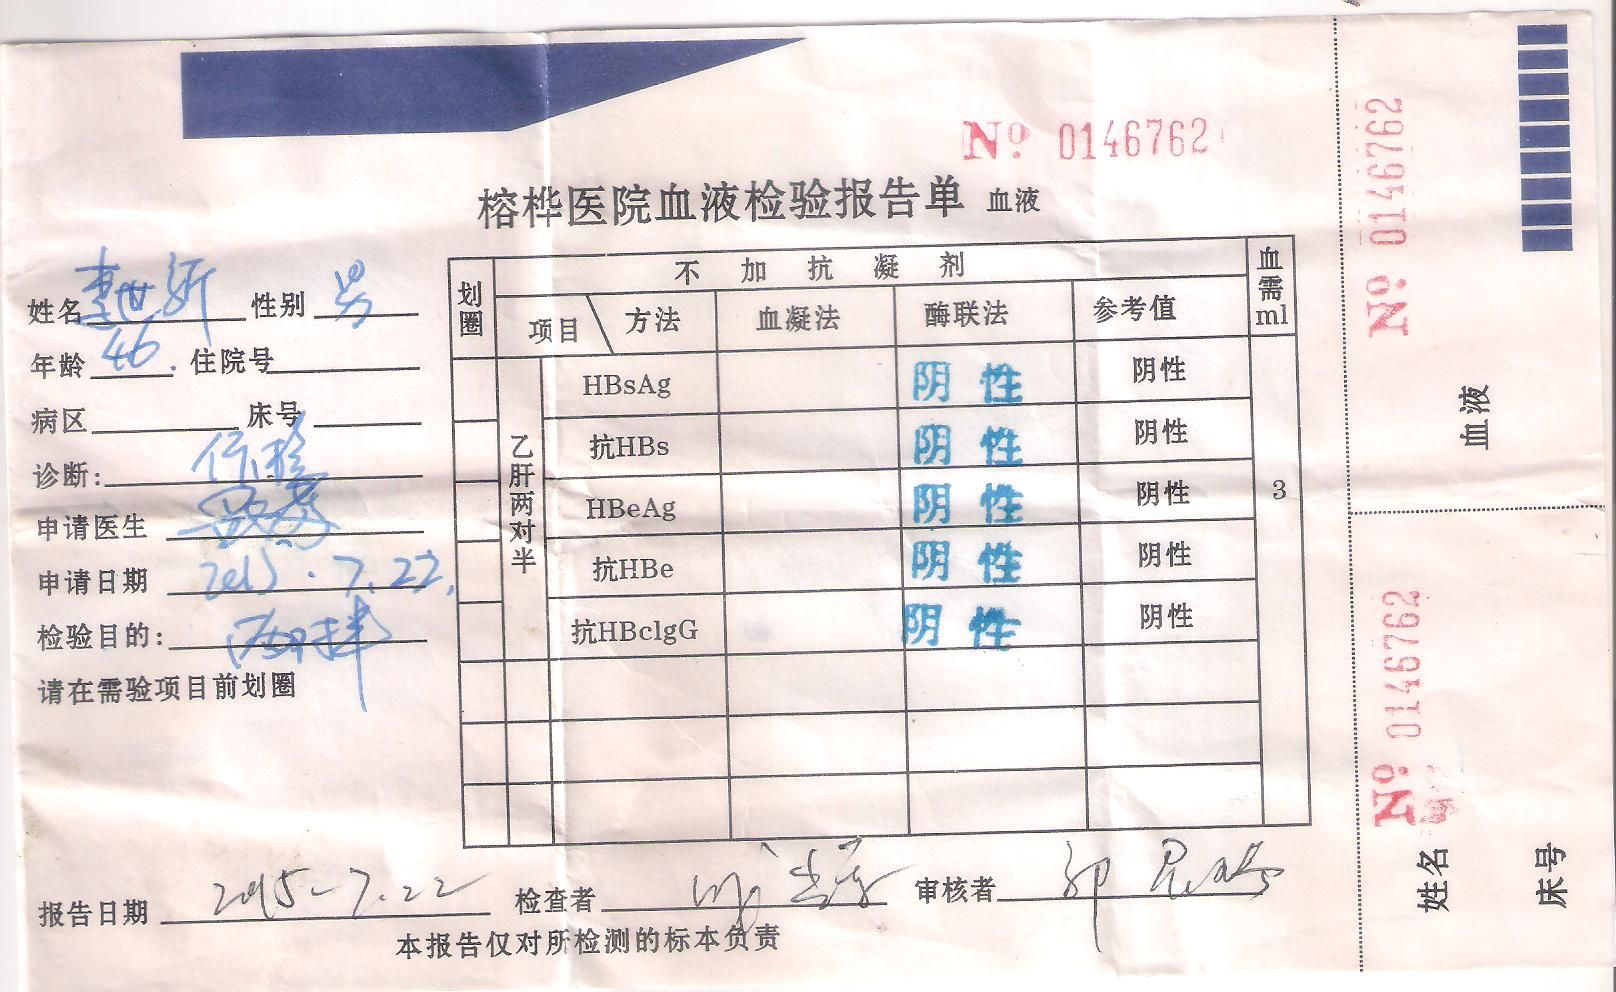 Nº 0146762
榕桦医院血液检验报告单 血液
姓名 世 性别 男
年龄 46. 住院号
病区 床号
诊断:
申请医生
申请日期 2015.7.22.
检验目的: 两对半
请在需验项目前划圈
划圈 不加抗凝剂 血需ml
项目 方法 血凝法 酶联法 参考值
乙肝两对半
HBsAg 阴性 阴性
抗HBs 阴性 阴性
HBeAg 阴性 阴性 3
抗HBe 阴性 阴性
抗HBclgG 阴性 阴性
报告日期 2015-7.22 检查者 审核者 郭
本报告仅对所检测的标本负责
Nº 0146762
血液
Nº 0146762
姓名
床号